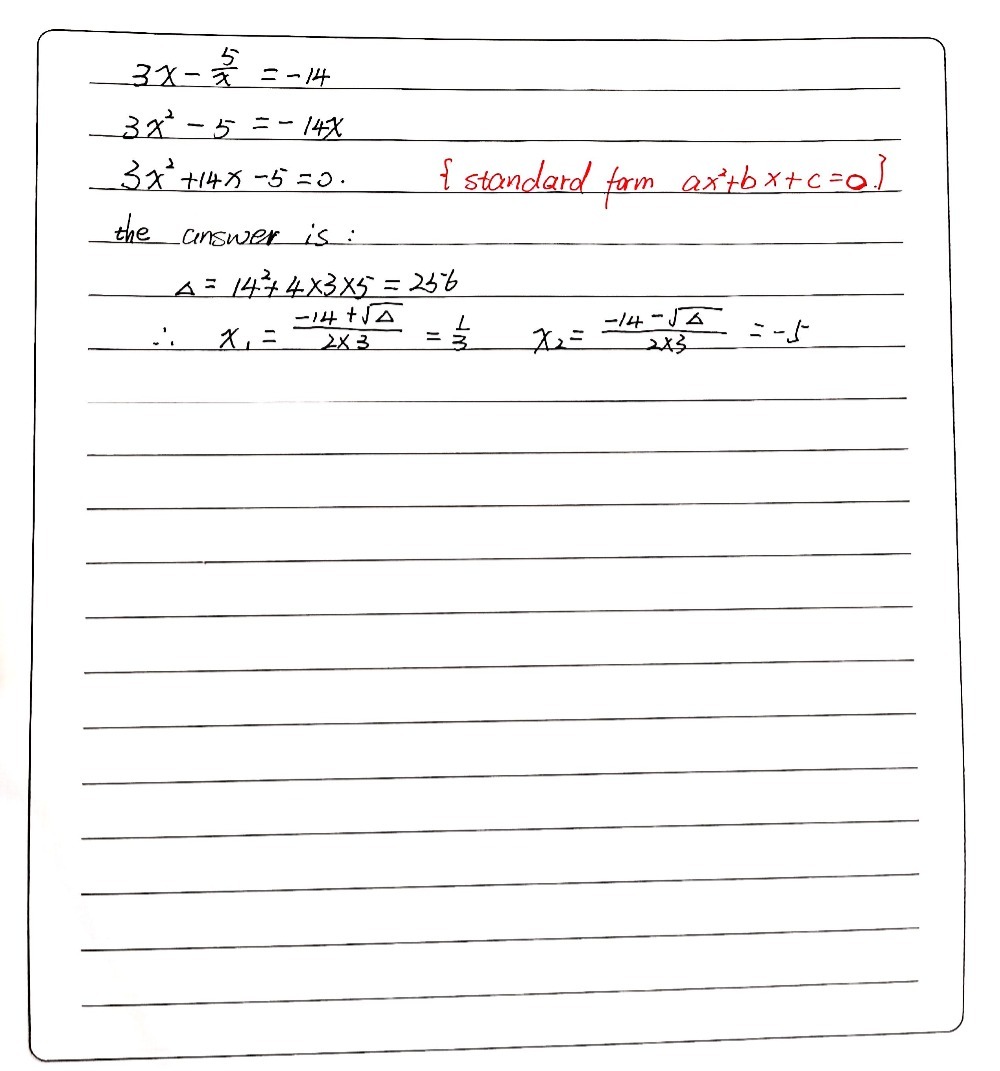 3x - 5/x = -14
3x² - 5 = - 14x
3x² + 14x - 5 = 0. { standard form ax² + bx + c = 0.}
the answer is :
△ = 14² + 4×3×5 = 256
∴ x₁ = (-14 + √△)/(2×3) = 1/3 x₂ = (-14 - √△)/(2×3) = -5